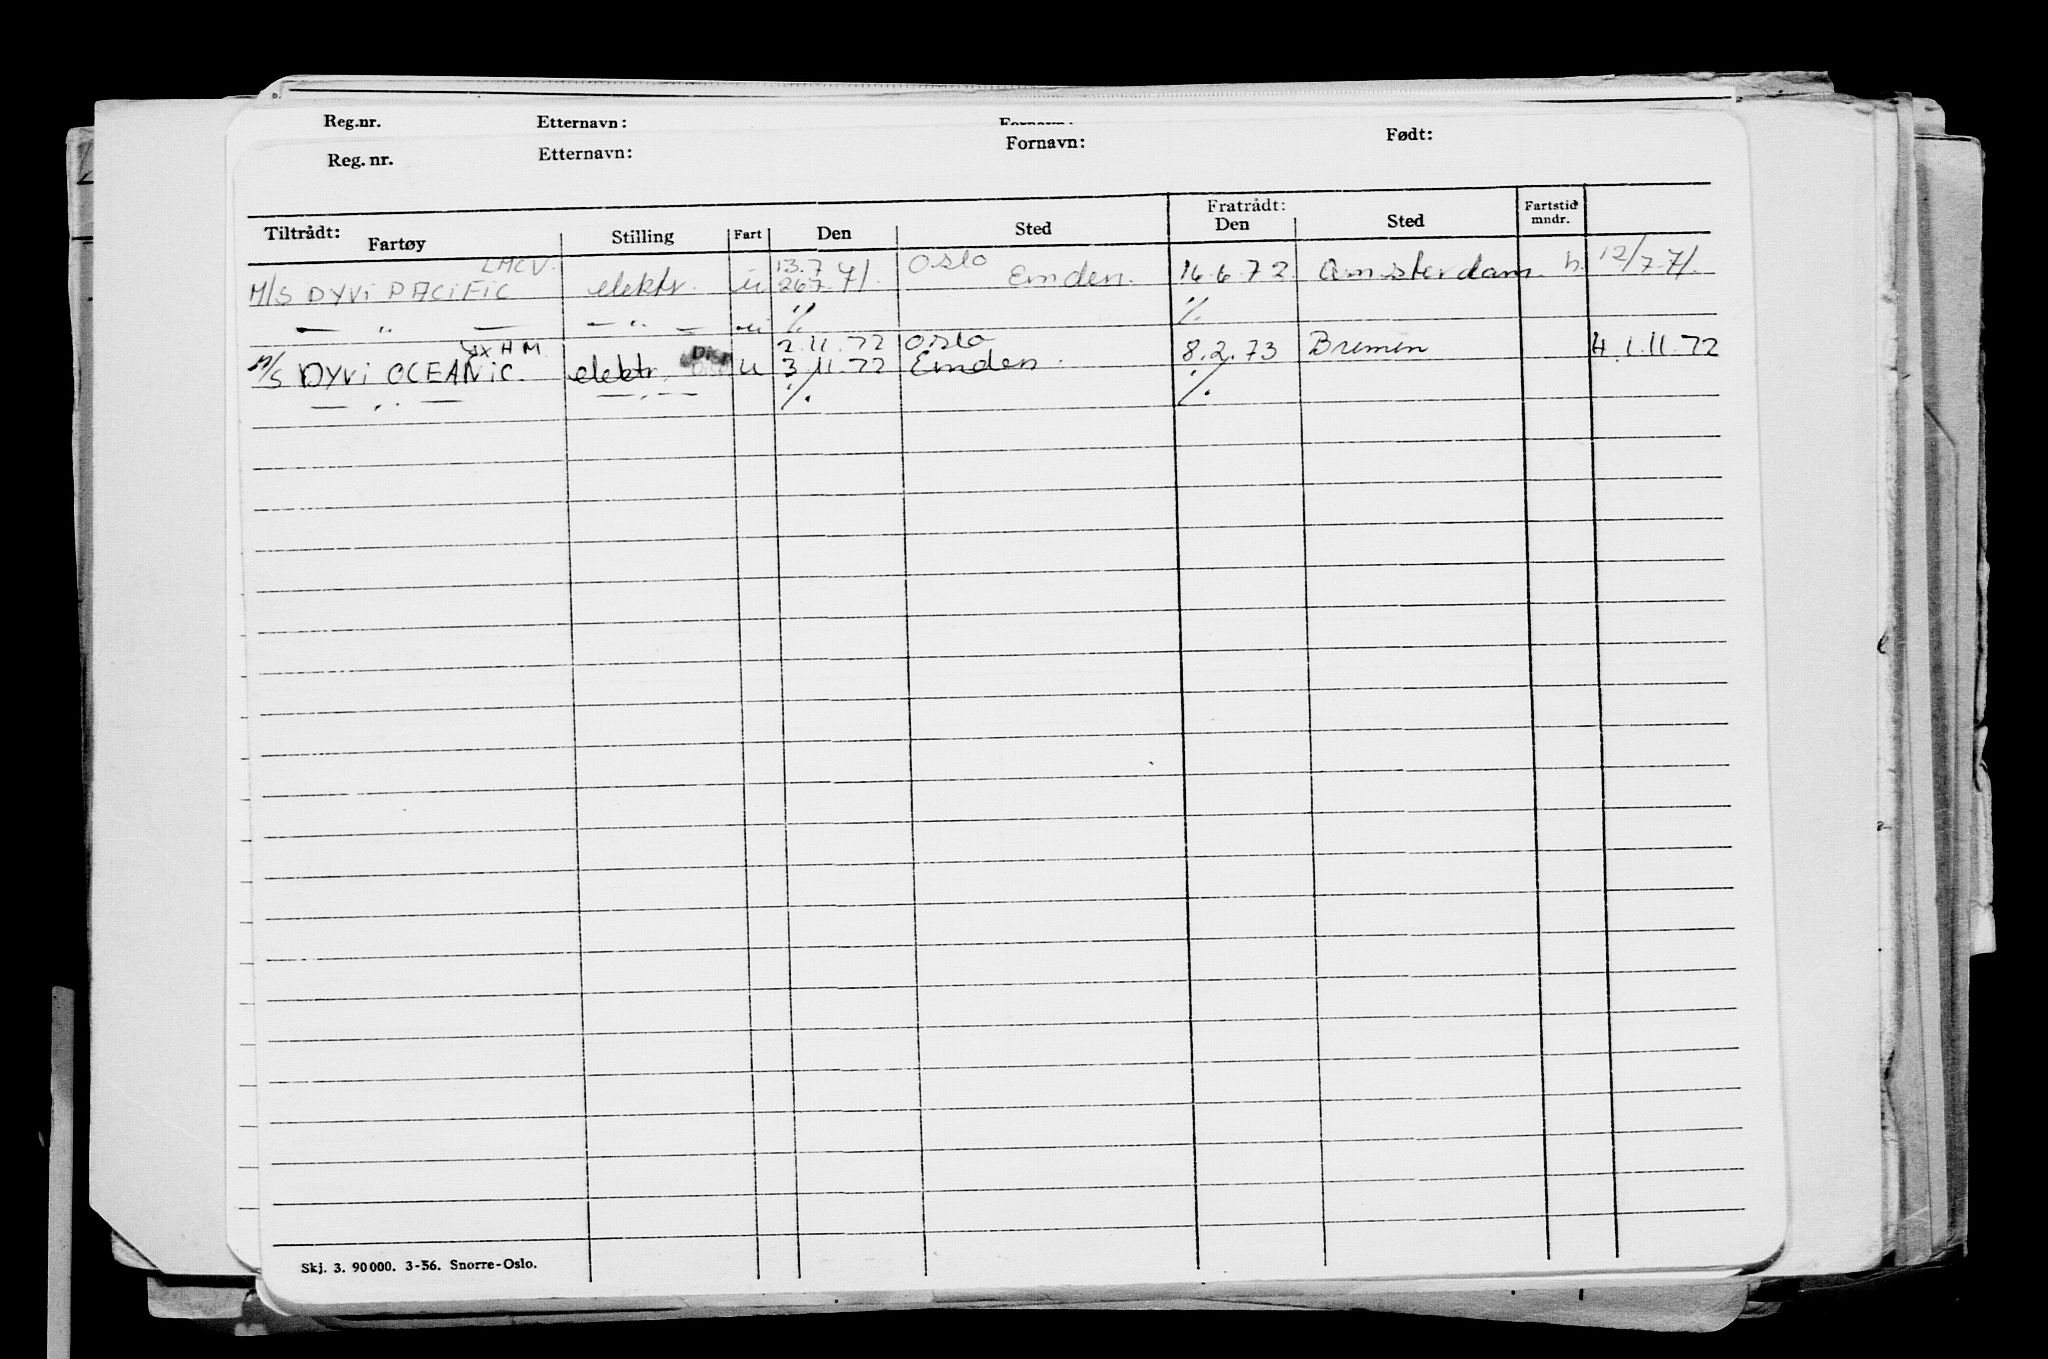 Reg.nr. Etternavn:
Reg. nr. Etternavn: Fornavn: Født:
Tiltrådt: Fratrådt: Fartstid mndr.
Fartøy Stilling Fart Den Sted Den Sted
LMCV. 13.7 Oslo
M/S DYVI PACIFIC elektr. u 26.7.71. Emden. 16.6.72 Amsterdam. h. 12/7.71.
— " — — " — u ./. ./.
2.11.72 Oslo
M/S DYVI OCEANIC. elektr. u 3.11.72 Emden. 8.2.73 Bremen H. 1.11.72
— " — — " — ./. ./.
Skj. 3. 90000. 3-56. Snorre-Oslo.